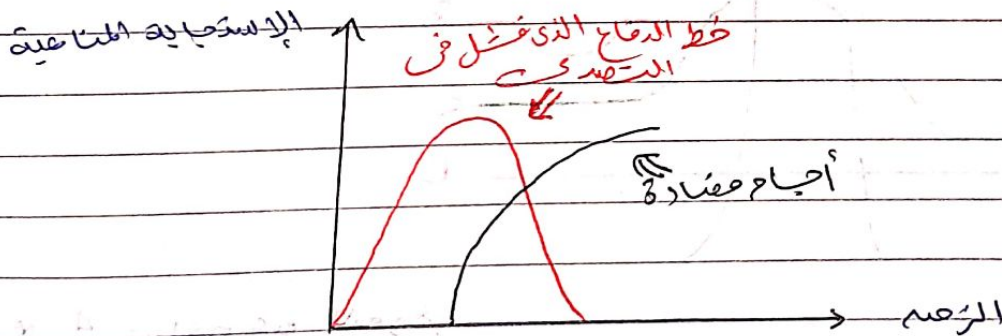 الإستجابة المناعية
خط الدفاع الذى فشل فى
التصدى
أجسام مضادة
الزمن